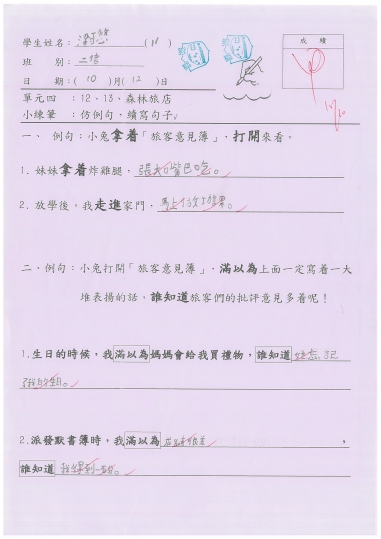 學生姓名：
成績
班　　別：二信
日　　期：( 10 )月( 12 )日
單元四　：12、13、森林旅店
小練筆　：仿例句，續寫句子。
一、 例句：小兔拿着「旅客意見簿」，打開來看。
1. 妹妹拿着炸雞腿，張大嘴巴吃。
2. 放學後，我走進家門，馬上
二、例句：小兔打開「旅客意見簿」，滿以為上面一定寫着一大
堆表揚的話，誰知道旅客們的批評意見多着呢！
1.生日的時候，我滿以為媽媽會給我買禮物，誰知道
了我的生日。
2.派發默書簿時，我滿以為
誰知道 我得到一百分。